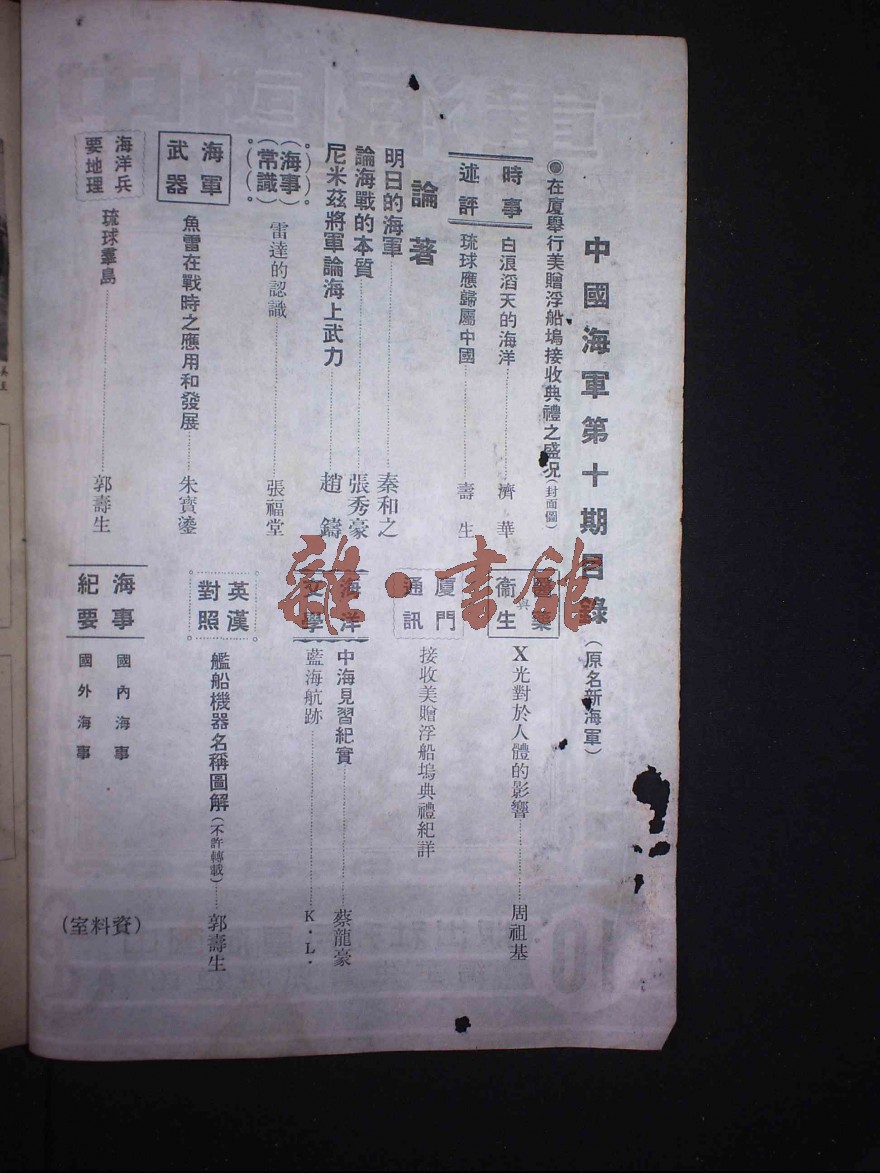 中國海軍第十期目錄（原名新海軍）
●在廈舉行美贈浮船塢接收典禮之盛况（封面圖）
時事述評
白浪滔天的海洋 濟華
琉球應歸屬中國 壽生
論著
明日的海軍 秦和之
論海戰的本質 張秀豪
尼米茲將軍論海上武力 趙鑄
（海事）（常識）
雷達的認識 張福堂
海軍武器
魚雷在戰時之應用和發展 朱寶鎏
海洋兵要地理
琉球羣島 郭壽生
醫藥與衞生
X光對於人體的影響 周祖基
廈門通訊
接收美贈浮船塢典禮紀詳
海洋文學
中海見習紀實 蔡龍豪
藍海航跡 K．L．
英漢對照
艦船機器名稱圖解（不許轉載） 郭壽生
海事紀要
國內海事
國外海事
（資料室）
雜·書館